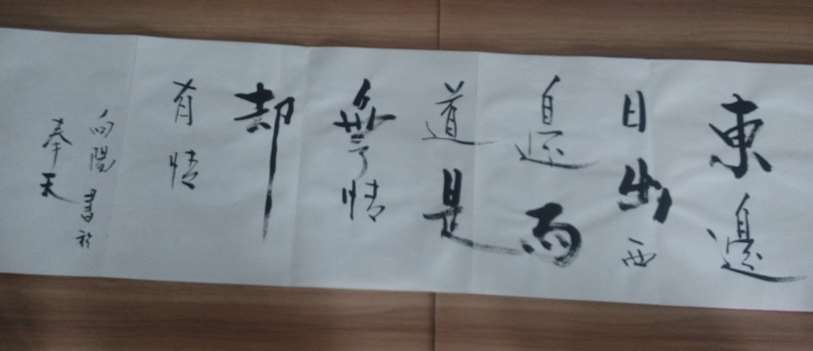 東邊
日出西
邊雨
道是
無情
却
有情
向陽書於
奉天